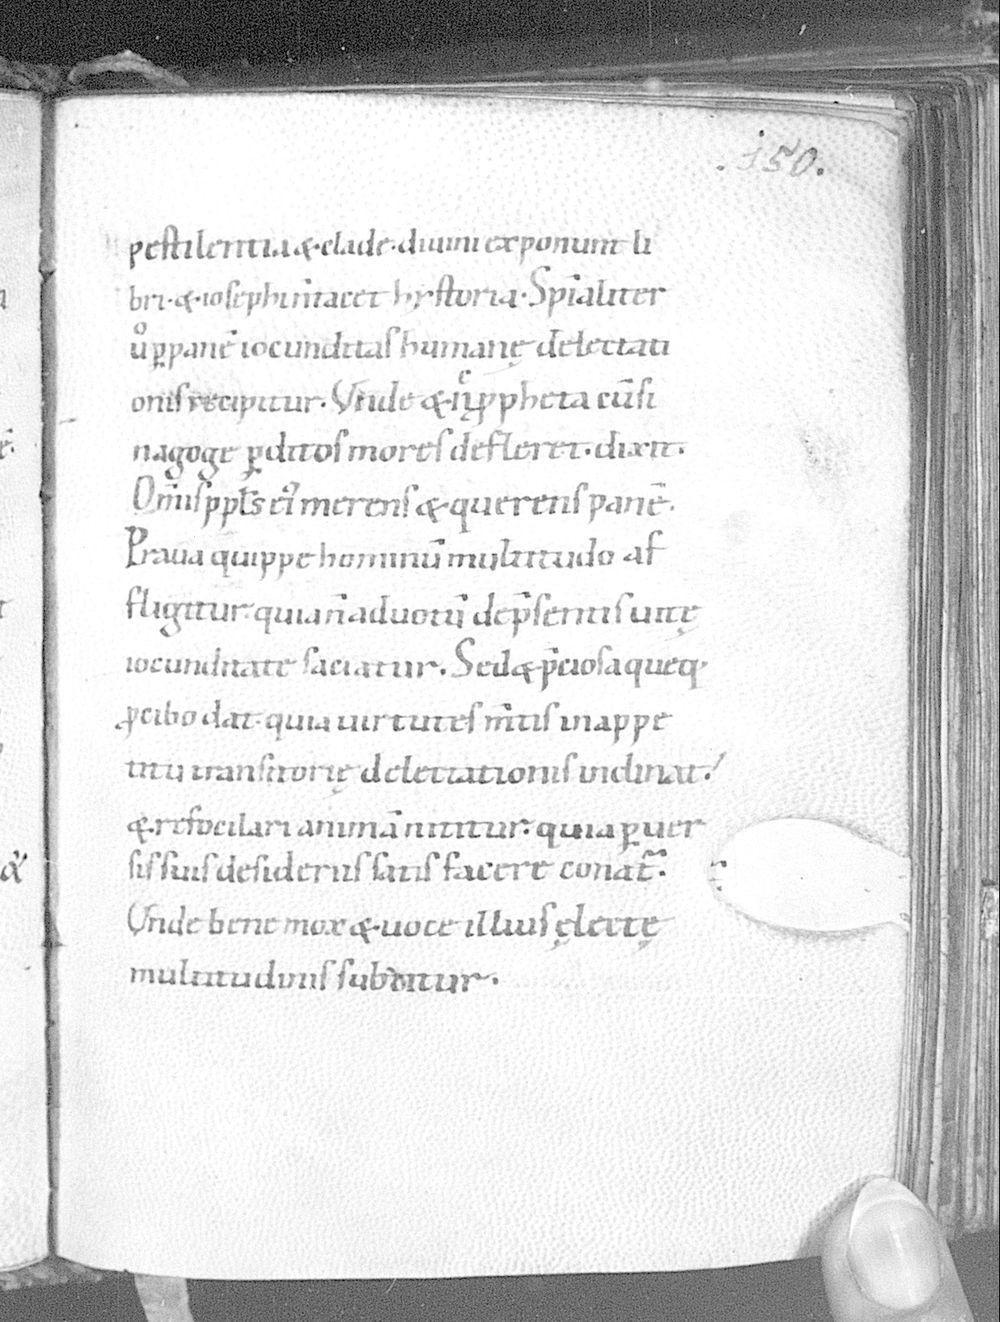 .150.
pestilentia &. clade. diuini exponunt li
bri. &. iosephi n̄ tacet hystoria. Sp̄ialiter
ů ꝑ panē iocunditas humanę delectati
onis recipitur. Vnde &. hᶜ ꝓpheta cū si
nagogę ꝑditos mores defleret. dixit.
Om̄is ppl̄s eiꝰ gemens &. querens panē.
Praua quippe hominū multitudo af
fligitur. quia n̄ ad uotū de p̄sentis uitę
iocunditate saciatur. Sed &. p̄ciosa queq.
ꝓ cibo dat. quia uirtutes m̄tis in appe
titu transitorię delectationis inclinat.
&. refocilari animā nititur. quia ꝑuer
sis suis desideriis satis facere conat̄.
Vnde bene mox &. uoce illius ęlectę
multitudinis subditur.
&